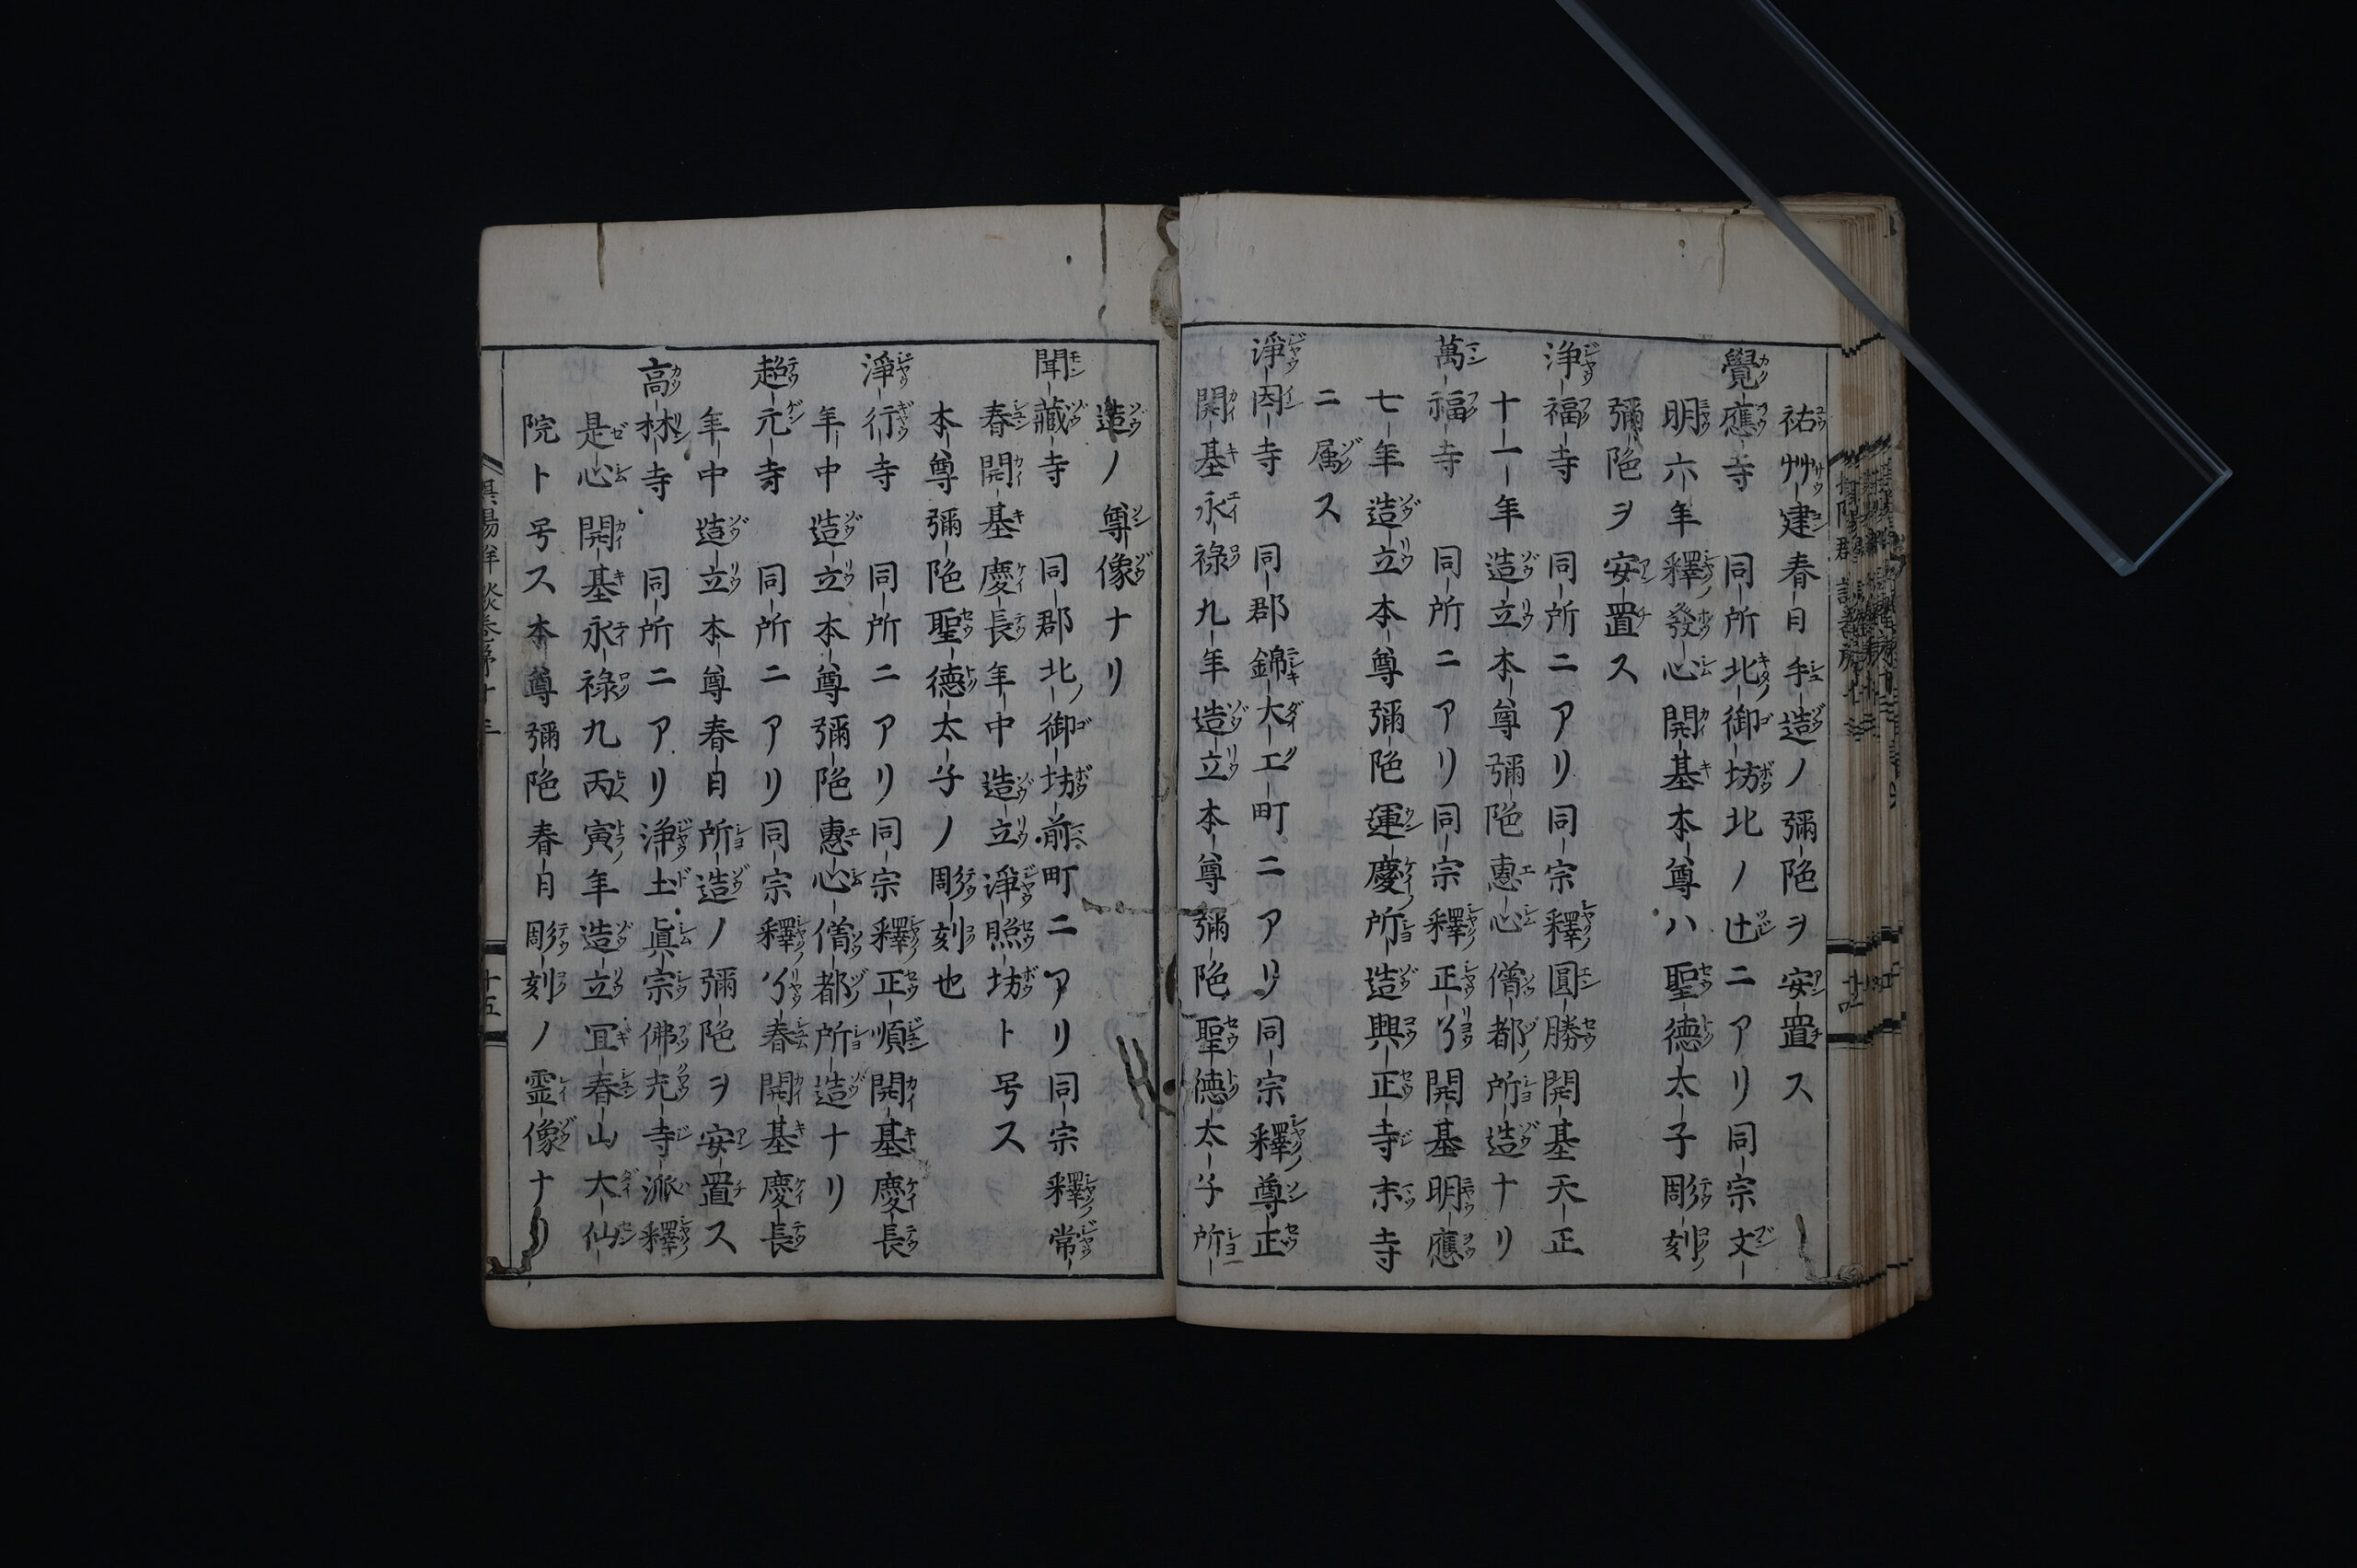 祐艸建春日手造ノ彌陁ヲ安置ス
覺應寺　同所北御坊北ノ辻ニアリ同宗文
明六年釋發心開基本尊ハ聖德太子彫刻
彌陁ヲ安置ス
淨福寺　同所ニアリ同宗釋圓勝開基天正
十一年造立本尊彌陁惠心僧都所造ナリ
萬福寺　同所ニアリ同宗釋正了開基明應
七年造立本尊彌陁運慶所造興正寺末寺
ニ属ス
淨因寺　同郡錦大工町ニアリ同宗釋尊正
開基永祿九年造立本尊彌陁聖德太子所
造ノ尊像ナリ
聞藏寺　同郡北御坊前町ニアリ同宗釋常
春開基慶長年中造立淨照坊ト号ス
本尊彌陁聖德太子ノ彫刻也
淨行寺　同所ニアリ同宗釋正順開基慶長
年中造立本尊彌陁惠心僧都所造ナリ
超元寺　同所ニアリ同宗釋了春開基慶長
年中造立本尊春日所造ノ彌陁ヲ安置ス
高林寺　同所ニアリ淨土眞宗佛光寺派釋
是心開基永祿九丙寅年造立冝春山大仙
院ト号ス本尊彌陁春日彫刻ノ霊像ナリ
十五